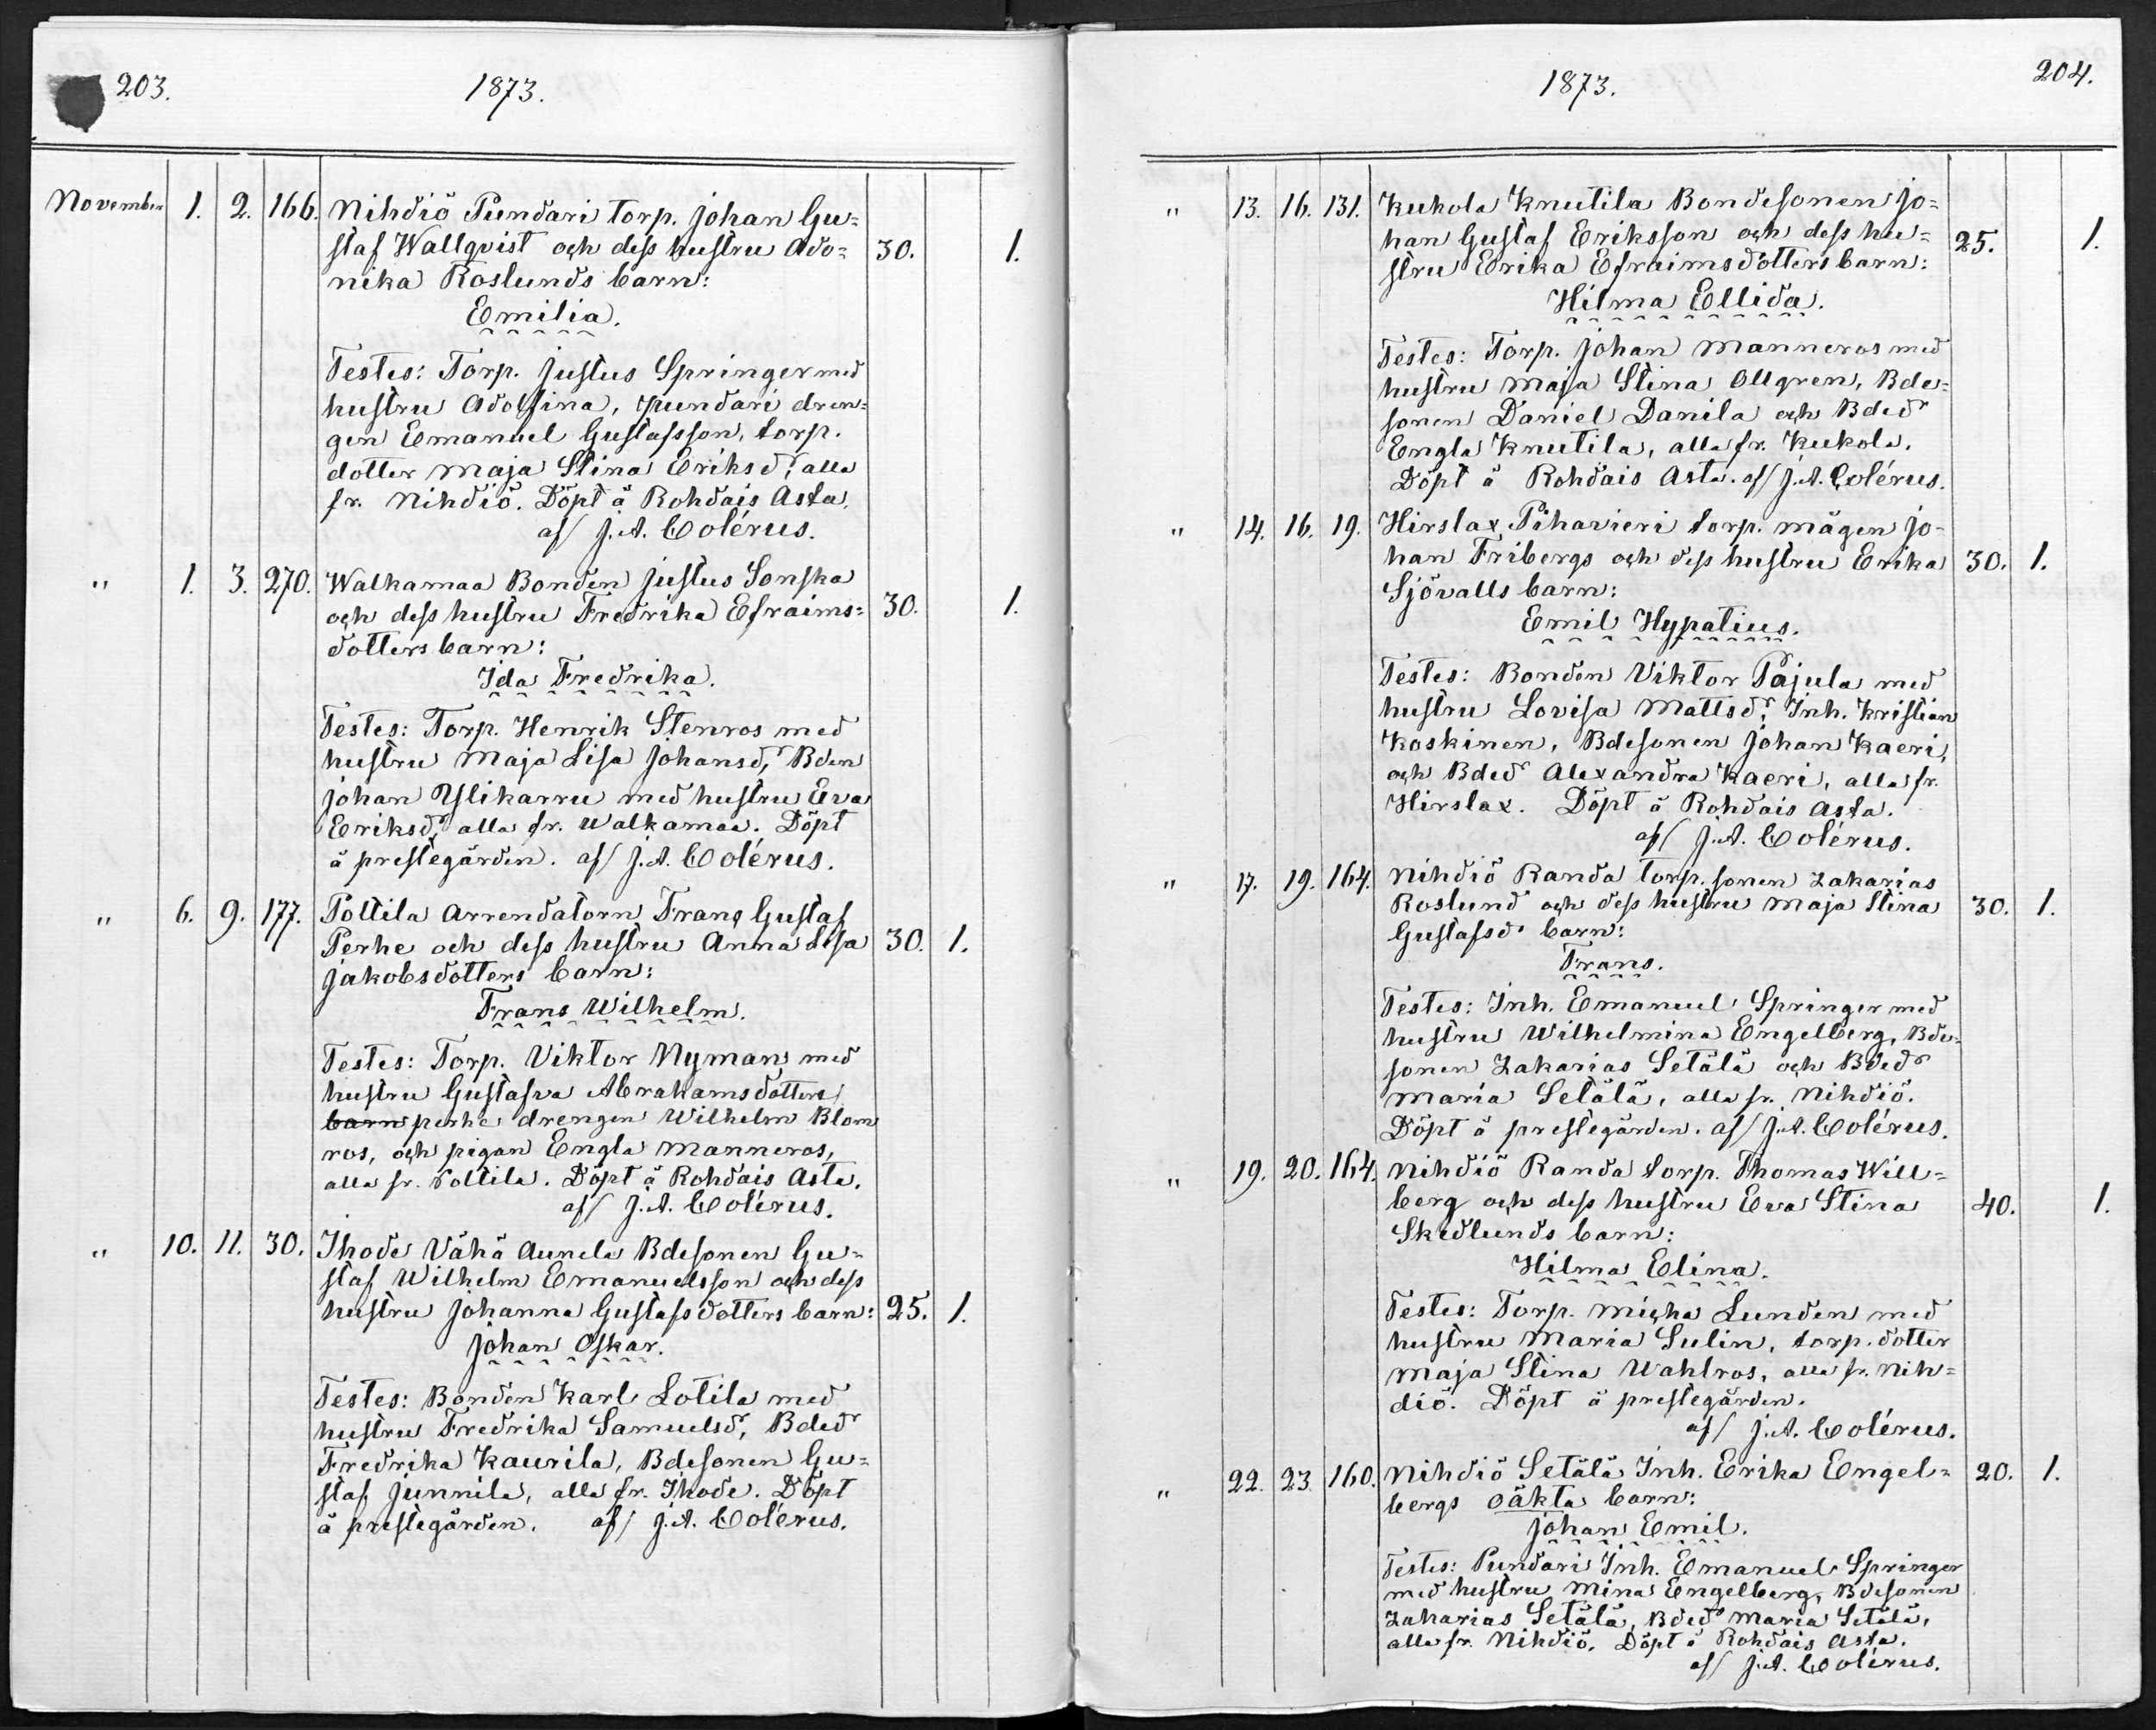 203.
1873.
November 1. 2. 166. Nihdiö Pundari torp. Johan Gu=
staf Wallqvist och dess hustru Ado= 30. 1.
nika Roslunds barn:
Emilia.
Testes: Torp. Justus Springer med
hustru Adolfina, pundari dren=
gen Emanuel Gustafsson, torp.
dotter Maja Stina Eriksdr, alla
fr. Nihdiö. Döpt å Rohdais Asta,
af/ J. A. Colérus.
" 1. 3. 270. Walkamaa Bonden Justus Sonska
och dess hustru Fredrika Efraims= 30. 1.
dotters barn:
Ida Fredrika.
Testes: Torp. Henrik Stenros med
hustru Maja Lisa Johansdr, Bden
Johan Ylikarru med hustru Eva
Eriksdr, alla fr. Walkamaa. Döpt
å prestegården. af/ J. A. Colérus.
" 6. 9. 177. Pottila Arrendatorn Frans Gustaf
Perhe och dess hustru Anna Lisa 30. 1.
Jakobsdotters barn:
Frans Wilhelm.
Testes: Torp. Viktor Nyman med
hustru Gustafva Abrahamsdotters
barn perhe drengen Wilhelm Blom
ros, och pigan Engla Manneros,
alla fr. Pottila. Döpt å Rohdais Asta.
af/ J. A. Colérus.
" 10. 11. 30. Ihode Vähä Aunela Bdesonen Gu=
staf Wilhelm Emanuelsson och dess
hustru Johanna Gustafsdotters barn: 25. 1.
Johan Oskar.
Testes: Bonden Karl Lotila med
hustru Fredrika Samuelsdr, Bdedr
Fredrika Kaurila, Bdesonen Gu=
staf Junnila, alla fr. Ihode. Döpt
å prestegården. af/ J. A. Colérus.
1873.
204.
" 13. 16. 131. Kukola Knutila Bondesonen Jo=
han Gustaf Eriksson och dess hu= 25. 1.
stru Erika Efraimsdotters barn:
Hilma Ellida.
Testes: Torp. Johan Manneros med
hustru Maja Stina Ollgren, Bde=
sonen Daniel Danila och Bdedr
Engla Knutila, alla fr. Kukola.
Döpt å Rohdais Asta. af/ J. A. Colérus.
" 14. 16. 19. Hirslax Pihavieri torp. mågen Jo=
han Fribergs och dess hustru Erika 30. 1.
Sjövalls barn:
Emil Hypatius.
Testes: Bonden Viktor Pajula med
hustru Lovisa Mattsdr, Inh. Kristian
Koskinen, Bdesonen Johan Kaeri,
och Bdedr Alexandra Kaeri, alla fr.
Hirslax. Döpt å Rohdais Asta.
af/ J. A. Colérus.
" 17. 19. 164. Nihdiö Randa torp. sonen Zakarias
Roslund och dess hustru Maja Stina 30. 1.
Gustafsdr barn:
Frans.
Testes: Inh. Emanuel Springer med
hustru Wilhelmina Engelberg, Bde=
sonen Zakarias Setälä och Bdedr
Maria Setälä, alla fr. Nihdiö.
Döpt å prestegården. af/ J. A. Colérus.
" 19. 20. 164. Nihdiö Randa torp. Thomas Will=
berg och dess hustru Eva Stina 40. 1.
Skedlunds barn:
Hilma Elina.
Testes: Torp. Micha Lunden med
hustru Maria Sulin, torp. dotter
Maja Stina Wahlros, alla fr. Nih=
diö. Döpt å prestegården.
af/ J. A. Colérus.
" 22. 23. 160. Nihdiö Setälä Inh. Erika Engel= 20. 1.
bergs oäkta barn:
Johan Emil.
Testes: Pundari Inh. Emanuel Springer
med hustru Mina Engelberg, Bdesonen
Zakarias Setälä, Bdedr Maria Setälä,
alla fr. Nihdiö. Döpt å Rohdais Asta.
af/ J. A. Colérus.